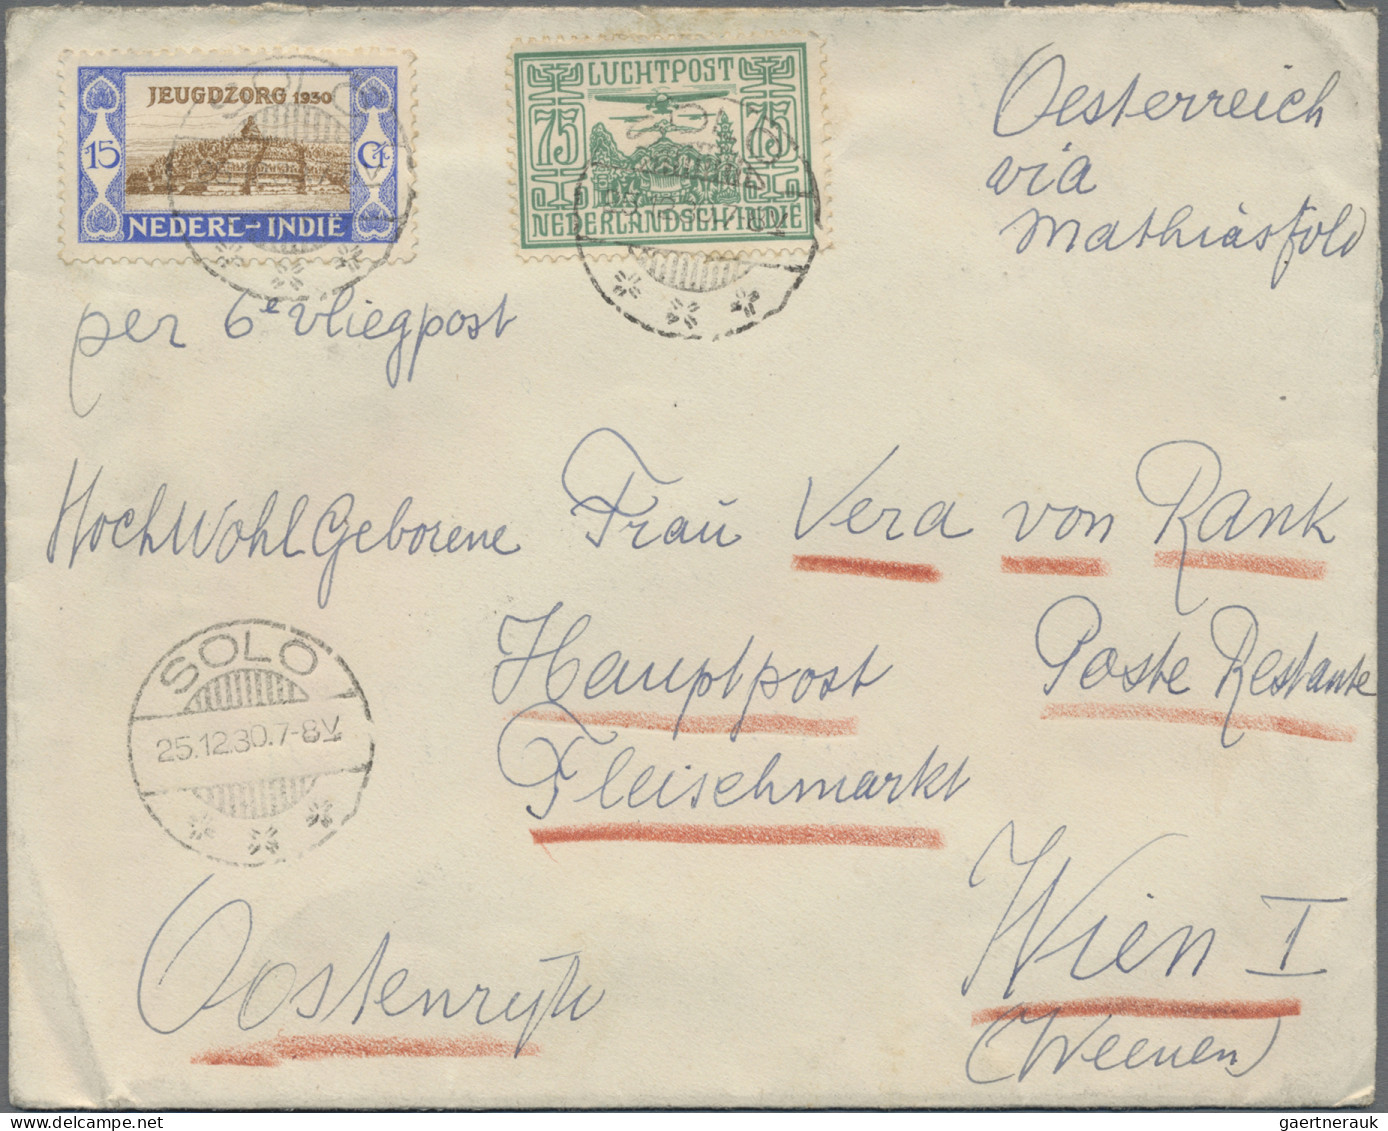 JEUGDZORG 1930
15 Ct.
NEDERL-INDIË
LUCHTPOST
75 75
NEDERLANDSCH INDIË
Oesterreich
via
Mathiasföld
per 6e vliegpost
HochWohlGeborene Frau Vera von Rank
Hauptpost Poste Restante
Fleischmarkt
SOLO
25.12.30.7-8V
Wien I
Oostenryk
(Weenen)
gaertnerauk